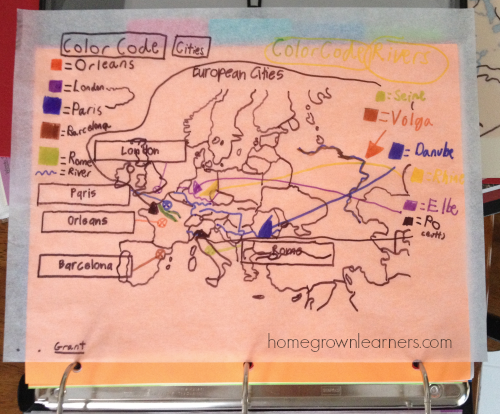 Color Code
Cities
Color Code
Rivers
European Cities
= Orleans
= London
= Paris
= Barcelona
= Rome
= River
London
Paris
Orleans
Barcelona
Rome
= Seine
= Volga
= Danube
= Rhine
= Elbe
= Po
Grant
homegrownlearners.com